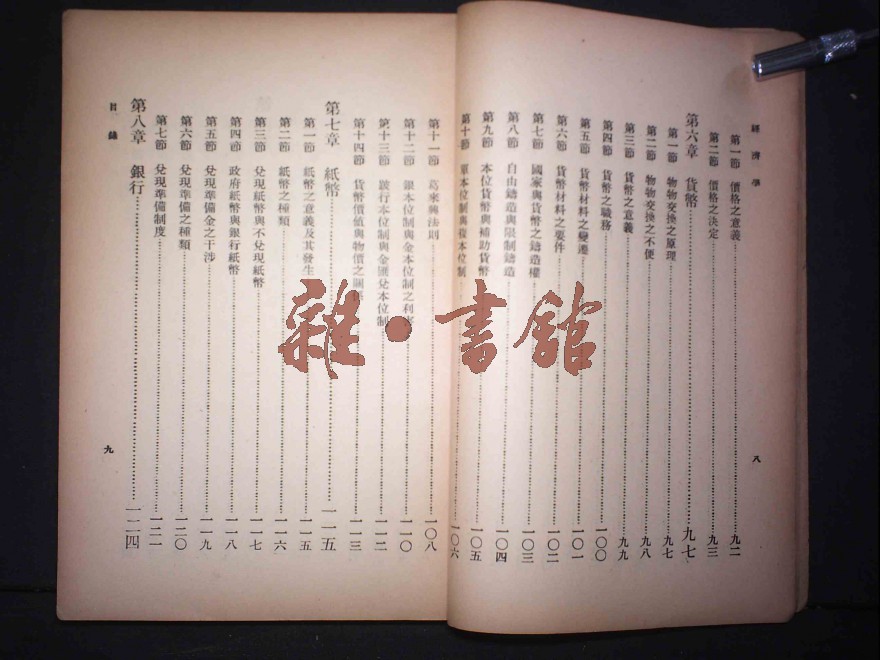 經濟學
第一節 價格之意義 九二
第二節 價格之決定 九三
第六章 貨幣 九七
第一節 物物交換之原理 九七
第二節 物物交換之不便 九八
第三節 貨幣之意義 九九
第四節 貨幣之職務 一〇〇
第五節 貨幣材料之變遷 一〇一
第六節 貨幣材料之要件 一〇二
第七節 國家與貨幣之鑄造權 一〇三
第八節 自由鑄造與限制鑄造 一〇四
第九節 本位貨幣與補助貨幣 一〇五
第十節 單本位制與複本位制 一〇六
八
第十一節 葛來興法則 一〇八
第十二節 銀本位制與金本位制之利害 一一〇
第十三節 跛行本位制與金匯兌本位制 一一二
第十四節 貨幣價值與物價之關係 一一三
第七章 紙幣 一一五
第一節 紙幣之意義及其發生 一一五
第二節 紙幣之種類 一一六
第三節 兌現紙幣與不兌現紙幣 一一七
第四節 政府紙幣與銀行紙幣 一一八
第五節 兌現準備金之干涉 一一九
第六節 兌現準備之種類 一二〇
第七節 兌現準備制度 一二一
第八章 銀行 一二四
目錄
九
雜·書館